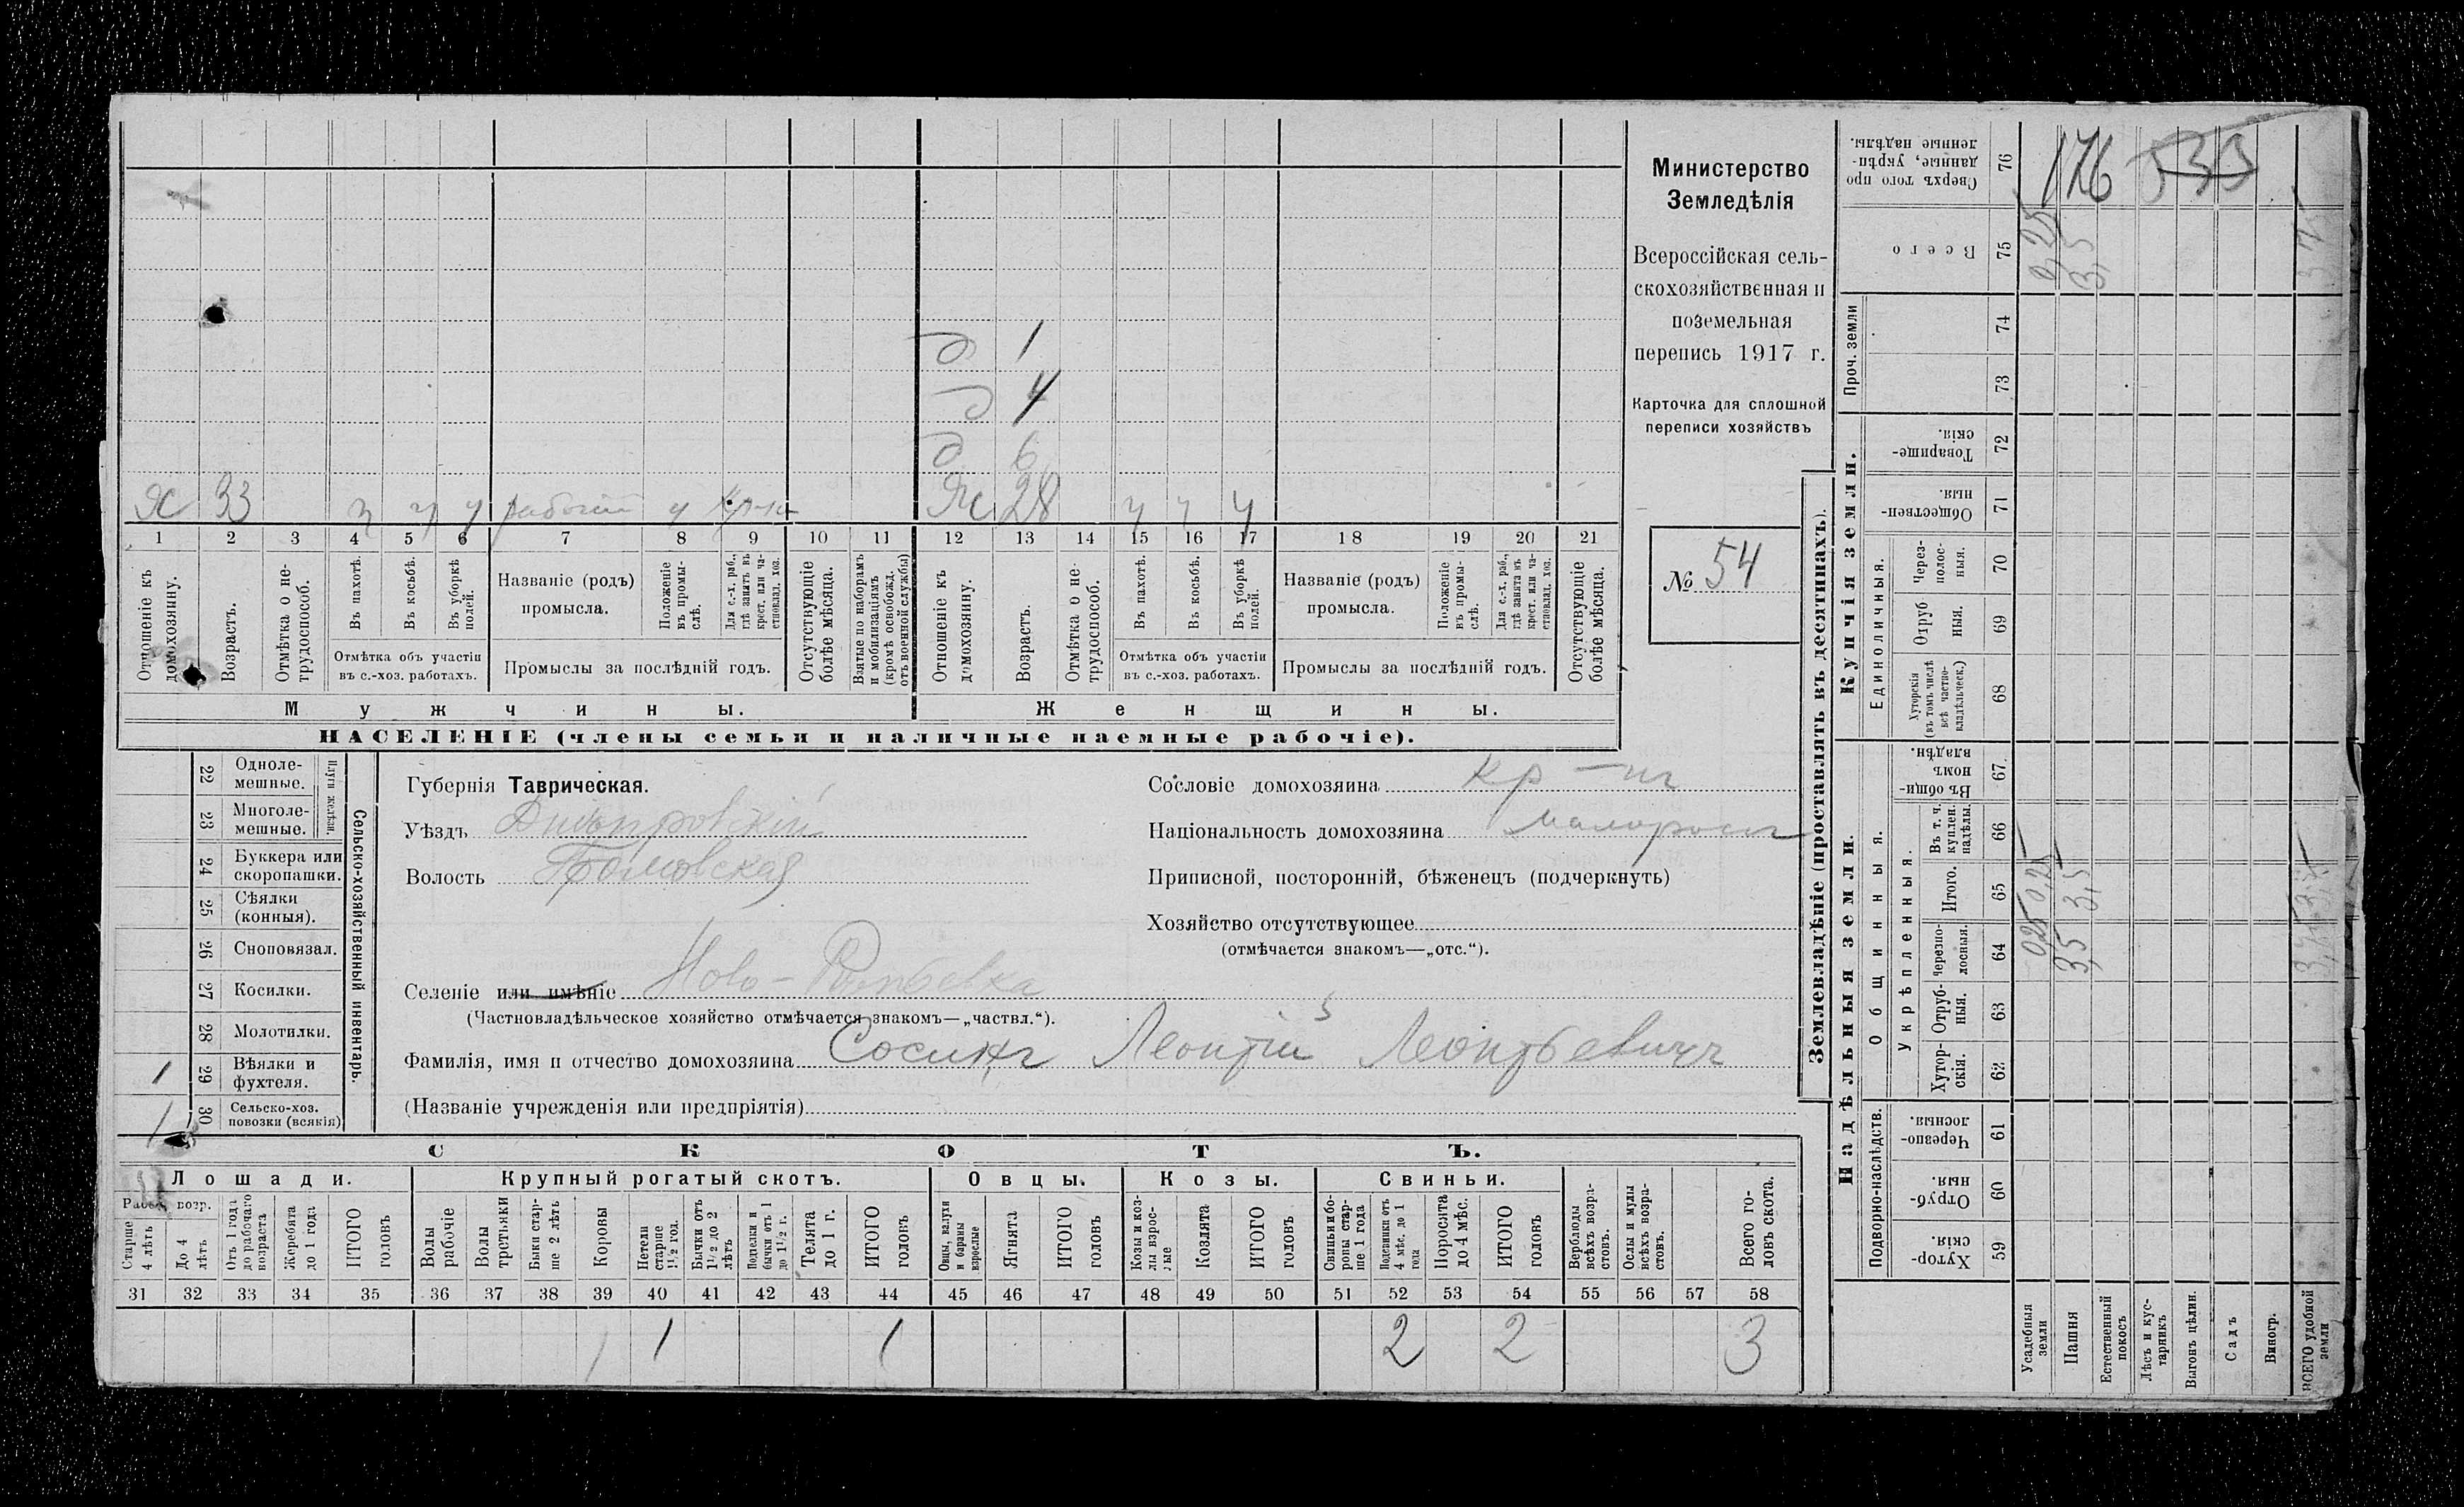 Министерство
Земледѣлія
Всероссійская сель-
скохозяйственная и
поземельная
перепись 1917 г.
Карточка для сплошной
переписи хозяйствъ
№ 54
д 1
д 4
д 6
33 у рабочій у
28 у у у
1 2 3 4 5 6 7 8 9 10 11 12 13 14 15 16 17 18 19 20 21
Отношеніе къ домохозяину.
Возрастъ.
Отмѣтка о не-трудоспособ.
Въ пахотѣ.
Въ косьбѣ.
Въ уборкѣ полей.
Отмѣтка объ участіи
въ с.-хоз. работахъ.
Названіе (родъ)
промысла.
Положеніе въ промы-слѣ.
Для с.-х. раб., гдѣ занятъ въ крест. или ча-стновлад. хоз.
Промыслы за послѣдній годъ.
Отсутствующіе болѣе мѣсяца.
Взятые по наборамъ и мобилизаціямъ (кромѣ освобожд. отъ военной службы)
Отношеніе къ домохозяину.
Возрастъ.
Отмѣтка о не-трудоспособ.
Въ пахотѣ.
Въ косьбѣ.
Въ уборкѣ полей.
Отмѣтка объ участіи
въ с.-хоз. работахъ.
Названіе (родъ)
промысла.
Положеніе въ промы-слѣ.
Для с.-х. раб., гдѣ занята въ крест. или ча-стновлад. хоз.
Промыслы за послѣдній годъ.
Отсутствующіе болѣе мѣсяца.
Мужчины. Женщины.
НАСЕЛЕНІЕ (члены семьи и наличные наемные рабочіе).
22 Одноле-мешные.
23 Многоле-мешные.
Плуги желѣзн.
24 Буккера или скоропашки.
25 Сѣялки (конныя).
26 Сноповязал.
27 Косилки.
28 Молотилки.
1 29 Вѣялки и фухтеля.
1 30 Сельско-хоз. повозки (всякія)
Сельско-хозяйственный инвентарь.
Губернія Таврическая.
Уѣздъ Днѣпровскій
Волость
Селеніе или имѣніе Ново-
(Частновладѣльческое хозяйство отмѣчается знакомъ—„частвл.“).
Фамилія, имя и отчество домохозяина Леонтій Леонтьевичъ
(Названіе учрежденія или предпріятія)
Сословіе домохозяина кр-нъ
Національность домохозяина малороссъ
Приписной, посторонній, бѣженецъ (подчеркнуть)
Хозяйство отсутствующее
(отмѣчается знакомъ—„отс.“).
СКОТЪ.
Лошади. Крупный рогатый скотъ. Овцы. Козы. Свиньи.
Рабоч. возр.
Старше 4 лѣтъ
До 4 лѣтъ
Отъ 1 года до рабочаго возраста
Жеребята до 1 года
ИТОГО головъ
Волы рабочіе
Волы третьяки
Быки стар-ше 2 лѣтъ
Коровы
Нетели старше 1½ год.
Бычки отъ 1½ до 2 лѣтъ
Подтелки и бычки отъ 1 до 1½ г.
Телята до 1 г.
ИТОГО головъ
Овцы, валухи и бараны взрослые
Ягнята
ИТОГО головъ
Козы и коз-лы взрос-лые
Козлята
ИТОГО головъ
Свиньи и бо-ровы стар-ше 1 года
Подсвинки отъ 4 мѣс. до 1 года
Поросята до 4 мѣс.
ИТОГО головъ
Верблюды всѣхъ возра-стовъ.
Ослы и мулы всѣхъ возра-стовъ.
Всего го-ловъ скота.
31 32 33 34 35 36 37 38 39 40 41 42 43 44 45 46 47 48 49 50 51 52 53 54 55 56 57 58
1 1 1 2 2 3
Землевладѣніе (проставлять въ десятинахъ).
Надѣльныя земли. Купчія земли.
Подворно-наслѣдств.
Общинныя.
Укрѣпленныя.
Единоличныя.
Проч. земли
Сверхъ того про-данные, укрѣп-ленные надѣлы. 76
176 533
Всего 75
0,25
3,5
74
73
Товарище-скія. 72
Обществен-ныя. 71
Через-полос-ныя. 70
Отруб-ныя. 69
Хуторскія (въ томъ числѣ всѣ частно-владѣльческ.) 68
Въ общи-номъ владѣн. 67
Въ т. ч. куплен. надѣлы 66
Итого. 65
0,25
3,5
Черезпо-лосныя. 64
0,25
3,5
Отруб-ныя. 63
Хутор-скія. 62
Черезпо-лосныя 61
Отруб-ныя. 60
Хутор-скія. 59
Усадебныя земли
Пашня
Естественный покосъ
Лѣсъ и кус-тарникъ
Выгонъ цѣлин.
Садъ
Виногр.
ВСЕГО удобной земли